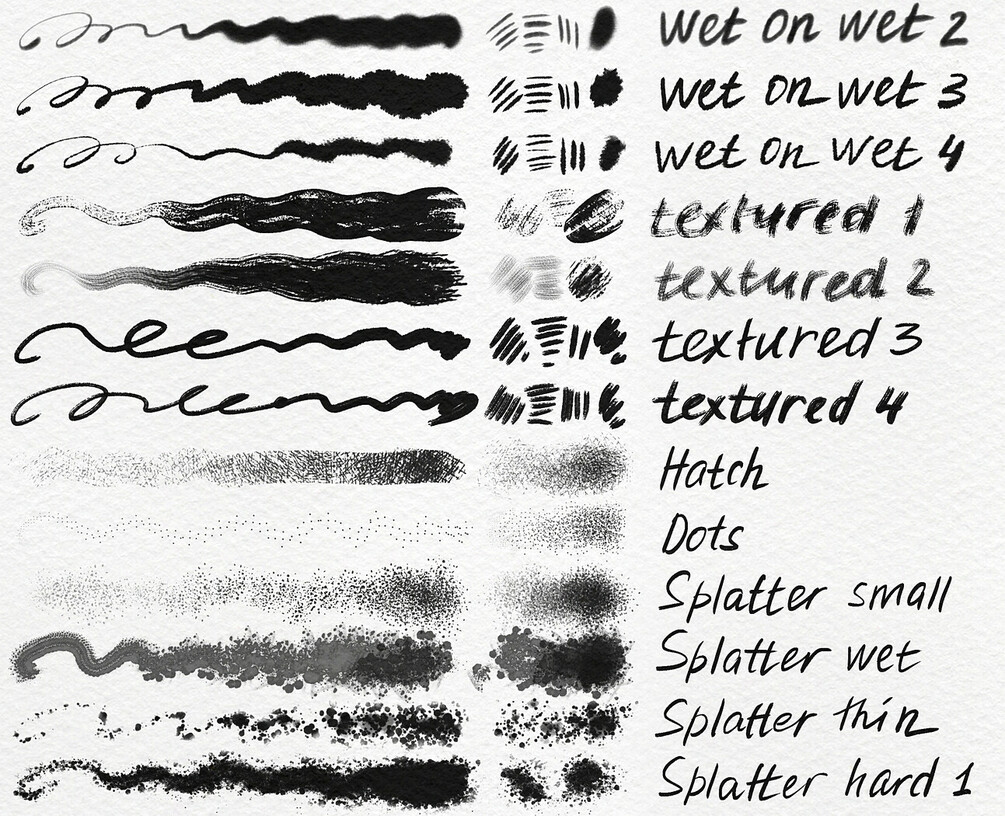 wet on wet 2
wet on wet 3
wet on wet 4
textured 1
textured 2
textured 3
textured 4
Hatch
Dots
Splatter small
Splatter wet
Splatter thin
Splatter hard 1